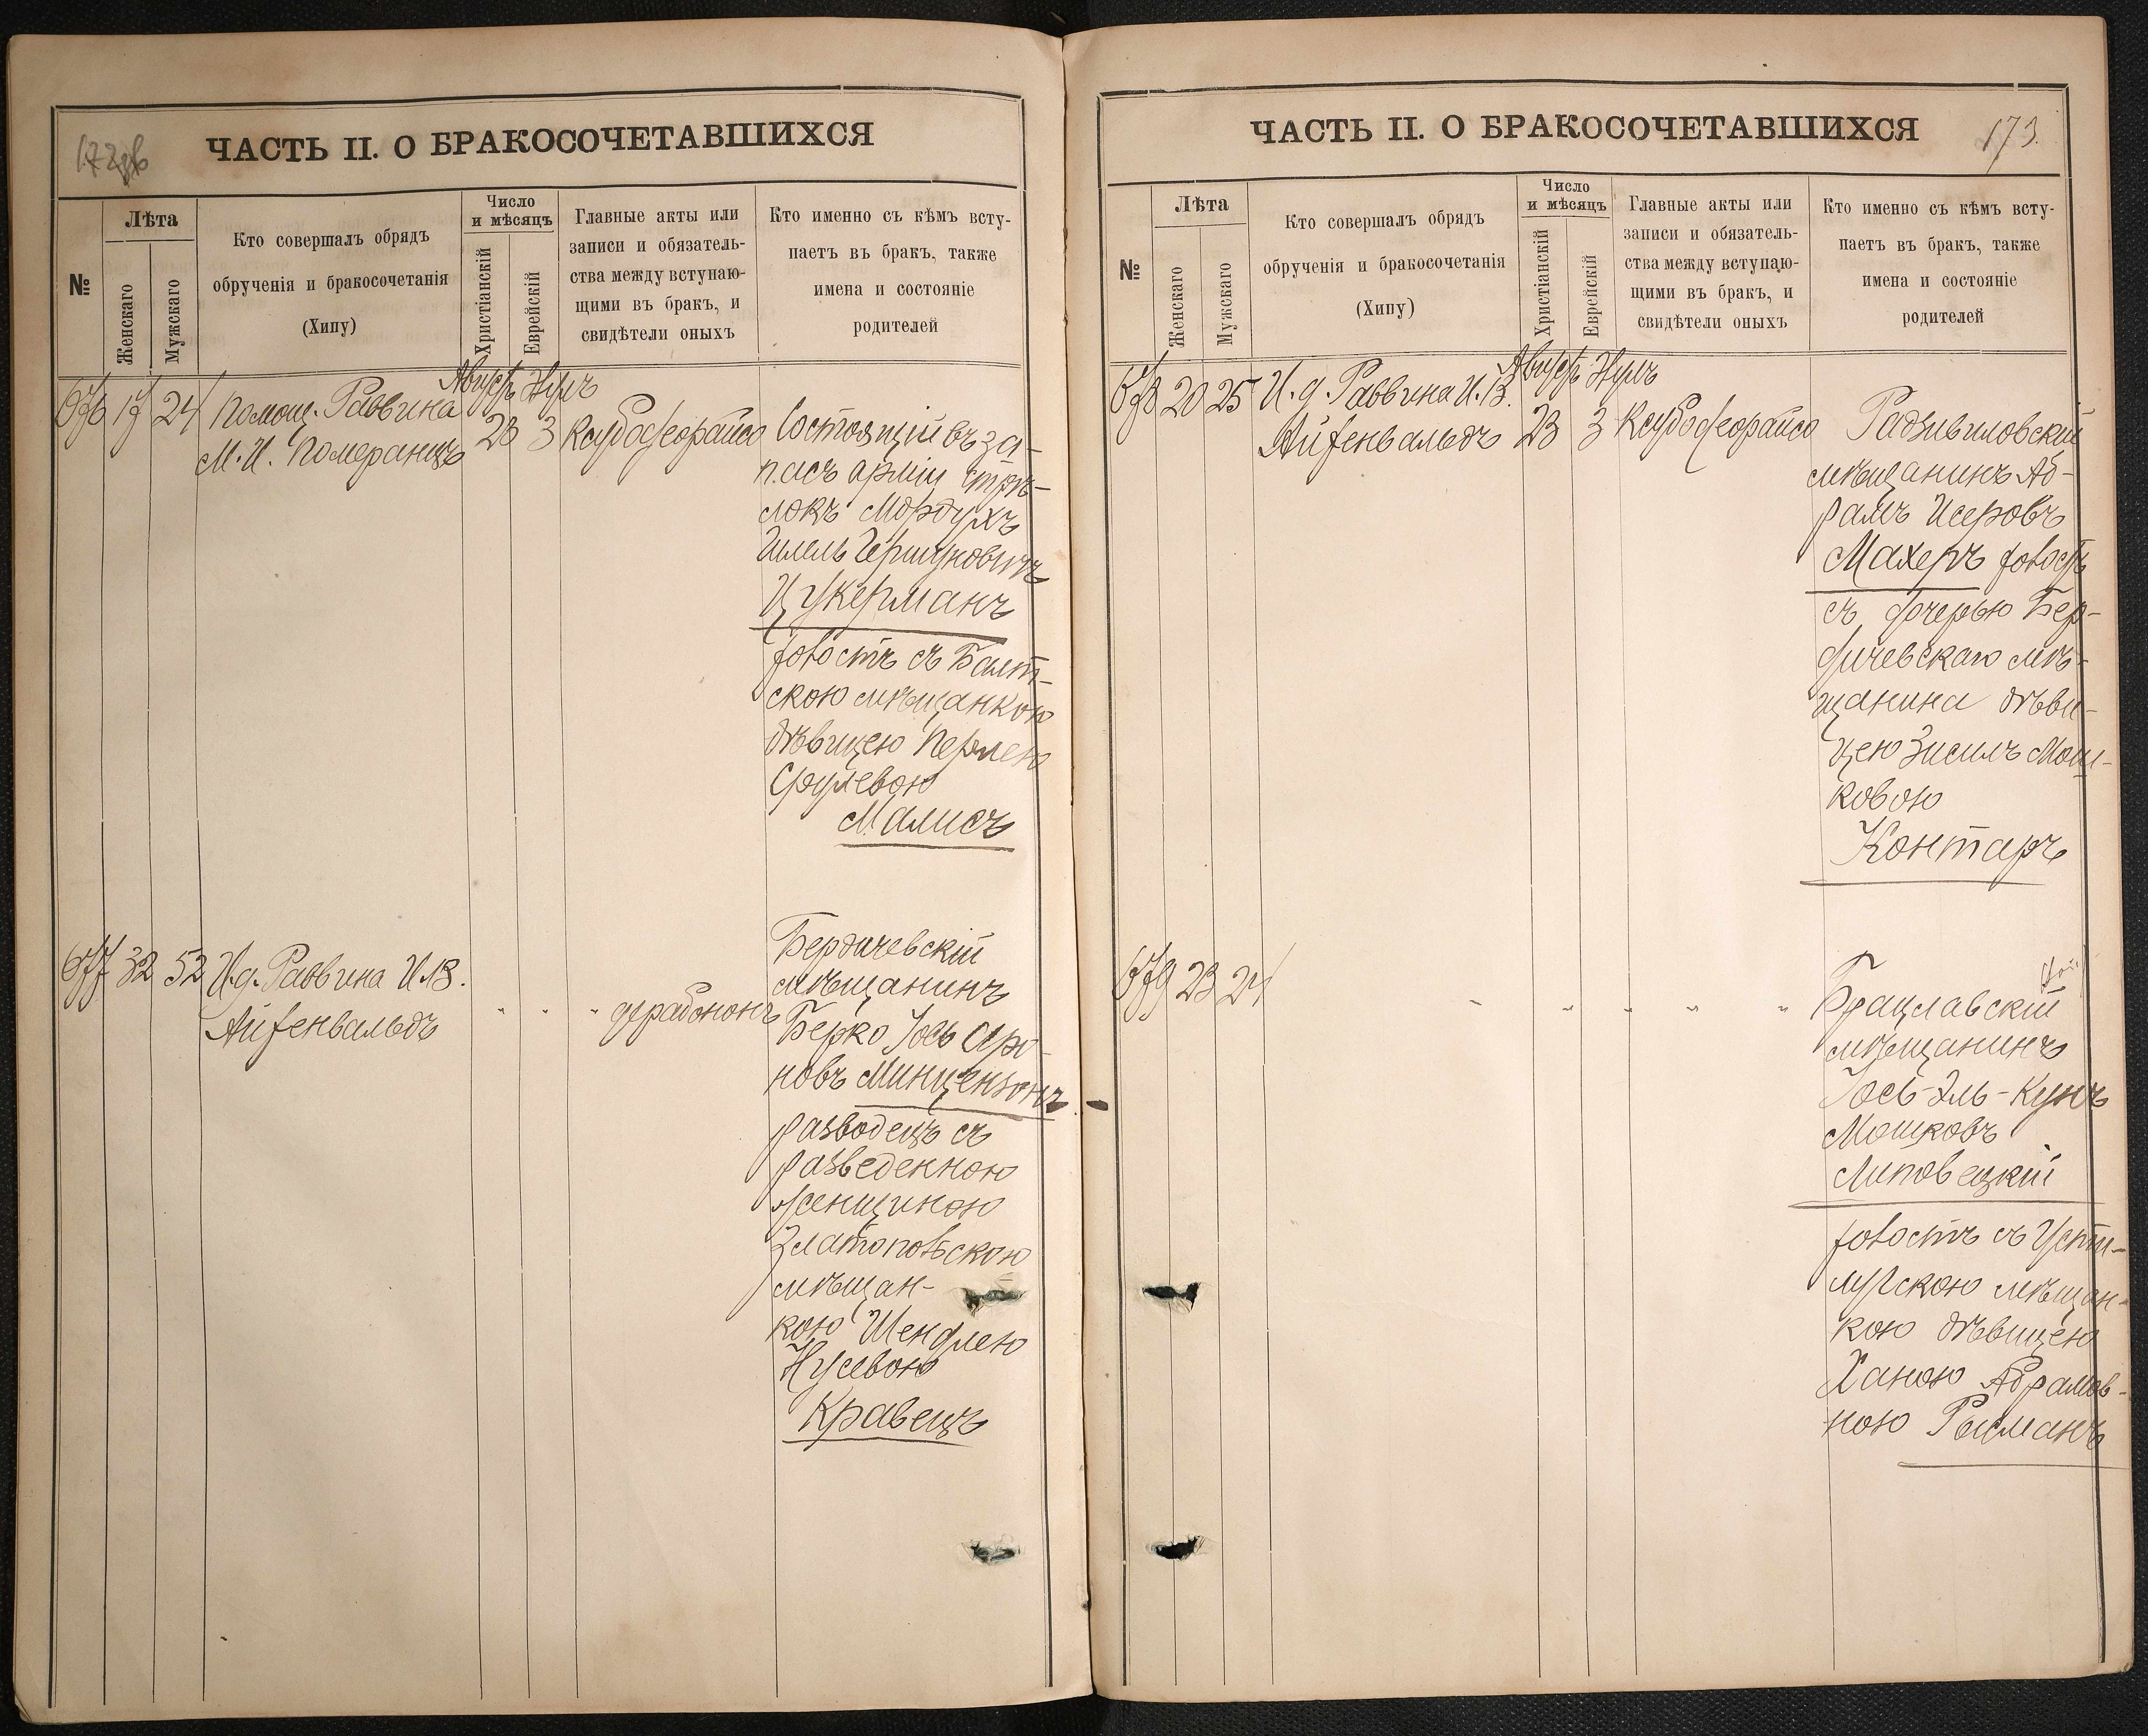 172 об
ЧАСТЬ II. О БРАКОСОЧЕТАВШИХСЯ
№
Лѣта
Женскаго
Мужскаго
Кто совершалъ обрядъ
обрученія и бракосочетанія
(Хипу)
Число
и мѣсяцъ
Христіанскій
Еврейскій
Главные акты или
записи и обязатель-
ства между вступаю-
щими въ бракъ, и
свидѣтели оныхъ
Кто именно съ кѣмъ всту-
паетъ въ бракъ, также
имена и состояніе
родителей
Августъ Илулъ
676 17 24 Помощ. Раввина
М. И. Померанцъ
23 3 Ксубодеорайсо
Состоящій въ за-
пасѣ арміи стрѣ-
локъ Мордухъ
Шмель Гершуновичъ
Цукерманъ
холостъ съ Балт-
скою мѣщанкою
дѣвицею Перлею
Сруллевою
Малисъ
677 32 52 И.д. Раввина И.В.
Айзенвальдъ
" " " дерабононъ
Бердичевскій
мѣщанинъ
Берко Іось Аро-
новъ Минцензонъ
разводецъ съ
разведенною
женщиною
Златопольскою
мѣщан-
кою Шендлею
Нусевою
Кравецъ
173.
ЧАСТЬ II. О БРАКОСОЧЕТАВШИХСЯ
№
Лѣта
Женскаго
Мужскаго
Кто совершалъ обрядъ
обрученія и бракосочетанія
(Хипу)
Число
и мѣсяцъ
Христіанскій
Еврейскій
Главные акты или
записи и обязатель-
ства между вступаю-
щими въ бракъ, и
свидѣтели оныхъ
Кто именно съ кѣмъ всту-
паетъ въ бракъ, также
имена и состояніе
родителей
Августъ Илулъ
678 20 25 И.д. Раввина И.В.
Айзенвальдъ
23 3 Ксубодеорайсо
Радзивиловскій
мѣщанинъ Аб-
рамъ Исеровъ
Махеръ холостъ
съ дочерью Бер-
дичевскаго мѣ-
щанина дѣви-
цею Зисилъ Мош-
ковою
Контаръ
679 23 24 " " " " "
Брацлавскій
мѣщанинъ
Іось-Эль-Кунъ
Мошковъ
Литовецкій
холостъ съ Усти-
лугскою мѣщан-
кою дѣвицею
Ханою Абрамов-
ною Рисманъ